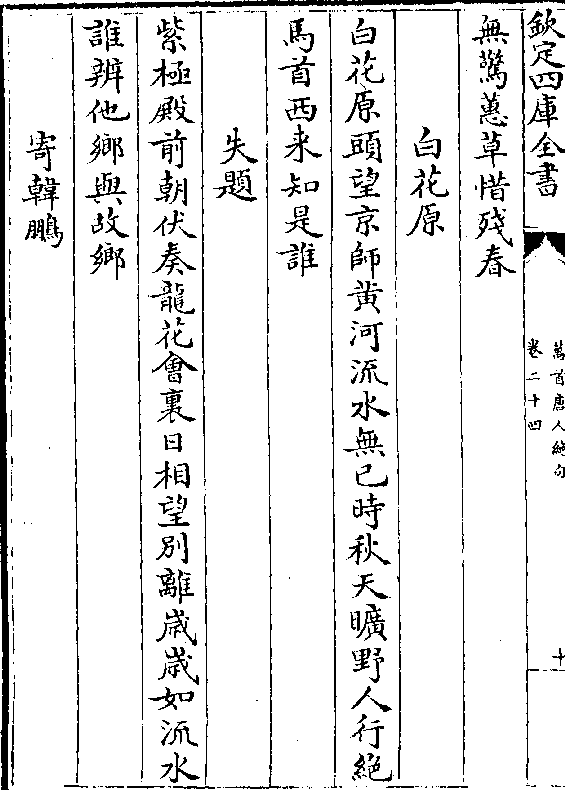 欽定四庫全書
萬首唐人絶句
卷二十四
十
無驚蕙草惜殘春
白花原
白花原頭望京師黄河流水無已時秋天曠野人行絶
馬首西来知是誰
失題
紫極殿前朝伏奏龍花會裏日相望别離歲歲如流水
誰辨他鄉與故鄉
寄韓鵬